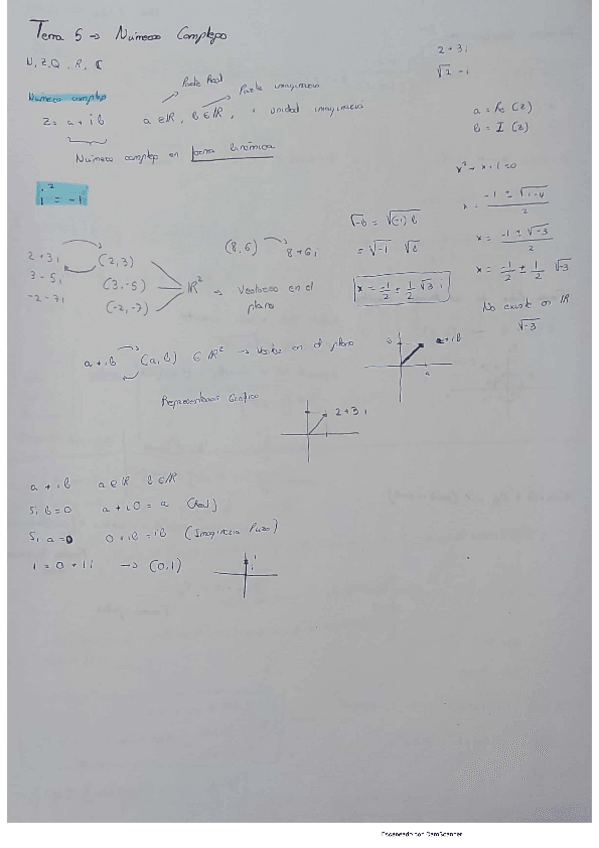 Tema 5 → Números Complejos
N, Z, Q, R, C
2 + 3i
√2 - i
Número complejo
Parte Real
Parte imaginaria
z = a + ib a ∈ R, b ∈ R, i unidad imaginaria
a = Re (z)
b = I (z)
Número complejo en forma binómica
i² = -1
x² + x + 1 = 0
x = (-1 ± √1-4) / 2
x = (-1 ± √-3) / 2
x = -1/2 ± 1/2 √-3
No existe en R
√-3
√-b = √(-1) b
= √-1 √b
x = -1/2 ± 1/2 √3 i
2 + 3i (2,3)
3 - 5i (3,-5)
-2 - 7i (-2,-7)
R² → Vectores en el plano
(8,6) 8 + 6i
a + ib (a,b) ∈ R² → Vector en el plano
b a + ib
a
Representación Gráfica
2 + 3i
a + ib a ∈ R b ∈ R
Si b = 0 a + i0 = a (Real)
Si a = 0 0 + ib = ib (Imaginario Puro)
i = 0 + 1i → (0,1)
i
Escaneado con CamScanner